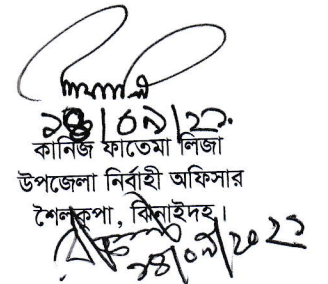 ১৪/০৯/২২
কানিজ ফাতেমা লিজা
উপজেলা নির্বাহী অফিসার
শৈলকুপা, ঝিনাইদহ।
১৪/০৯/২০২২